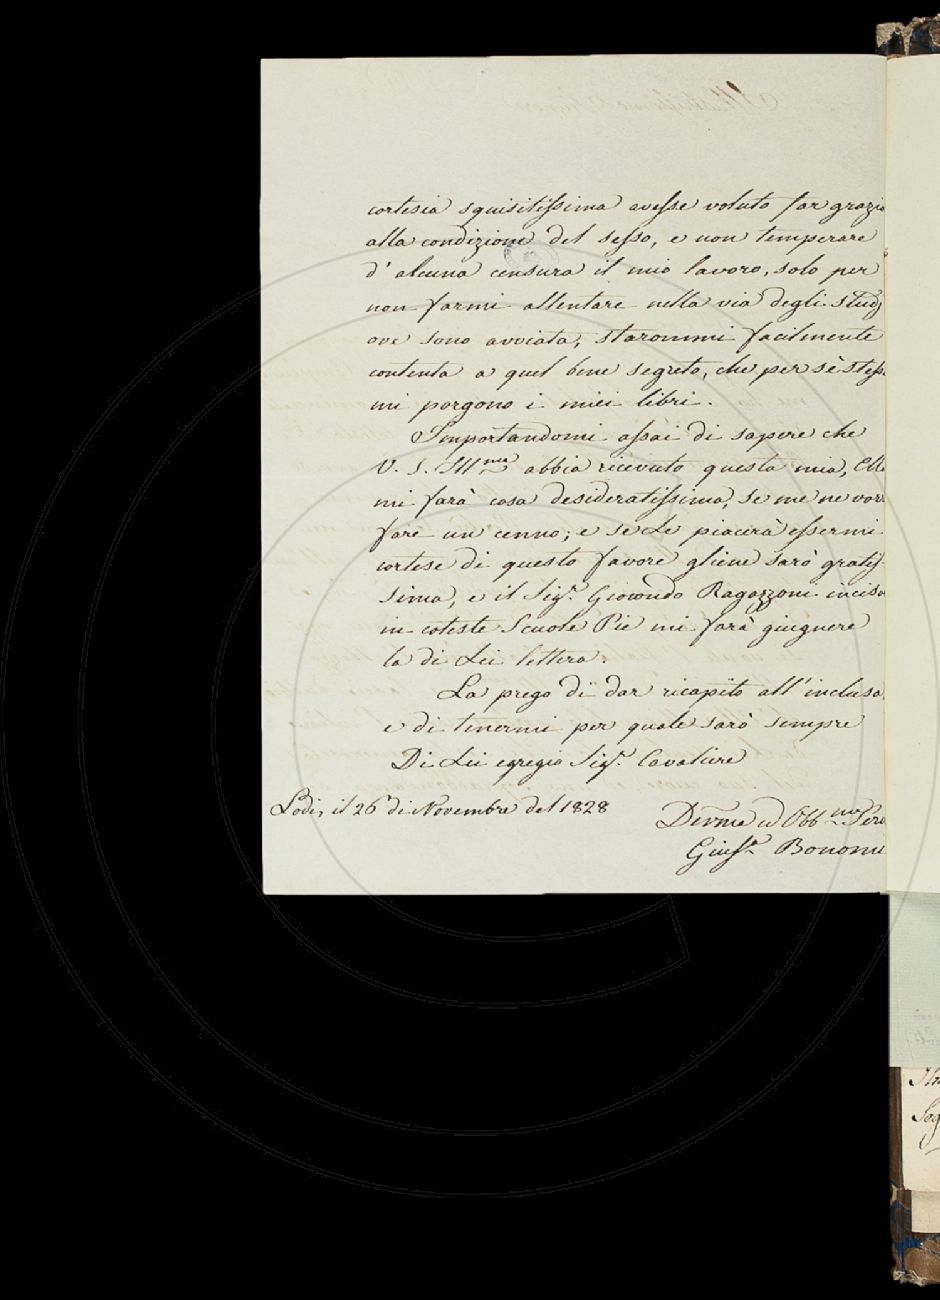 cortesia squisitissima avesse voluto far grazia
alla condizione del sesso, e non temperare
d'alcuna censura il mio lavoro, solo per
non farmi allentare nella via degli studj
ove sono avviata, starommi facilmente
contenta a quel bene segreto, che per sè stess
mi porgono i miei libri.
Importandomi assai di sapere che
V. S. Ill.ma abbia ricevuto questa mia, Ell
mi farà cosa desideratissima, se me ne vor
fare un cenno; e se Le piacerà essermi
cortese di questo favore gliene sarò gratis-
sima, e il Sig.r Giocondo Ragazzoni inciso
in coteste Scuole Pie mi farà giugnere
la di Lei lettera.
La prego di dar ricapito all'inclusa
e di tenermi per quale sarò sempre
Di Lei egregio Sig.r Cavaliere
Lodi, il 26 di Novembre del 1828
Devma ed Obb.ma Serv
Gius.a Bonomi